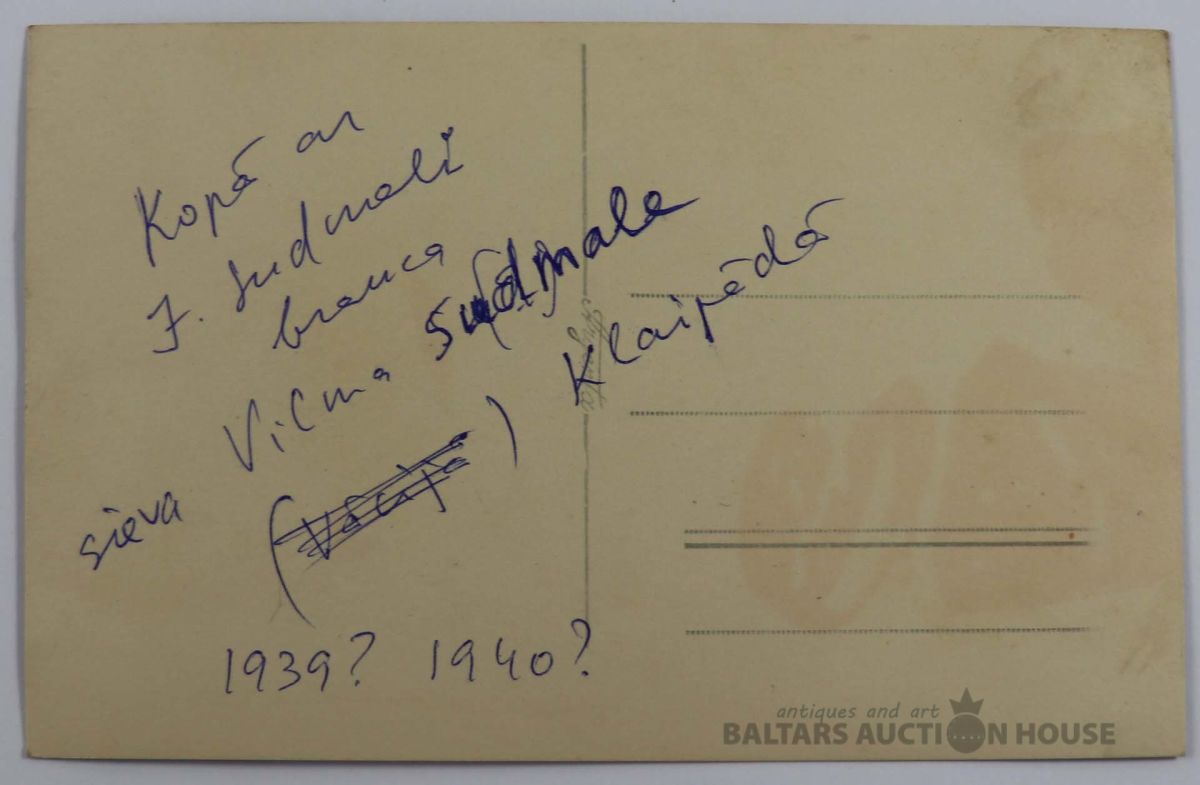 Kopā ar
J. Sudmali
brauca
sieva Vilma Sudmala
( ) Klaipēdā
1939? 1940?
antiques and art
BALTARS AUCTION HOUSE